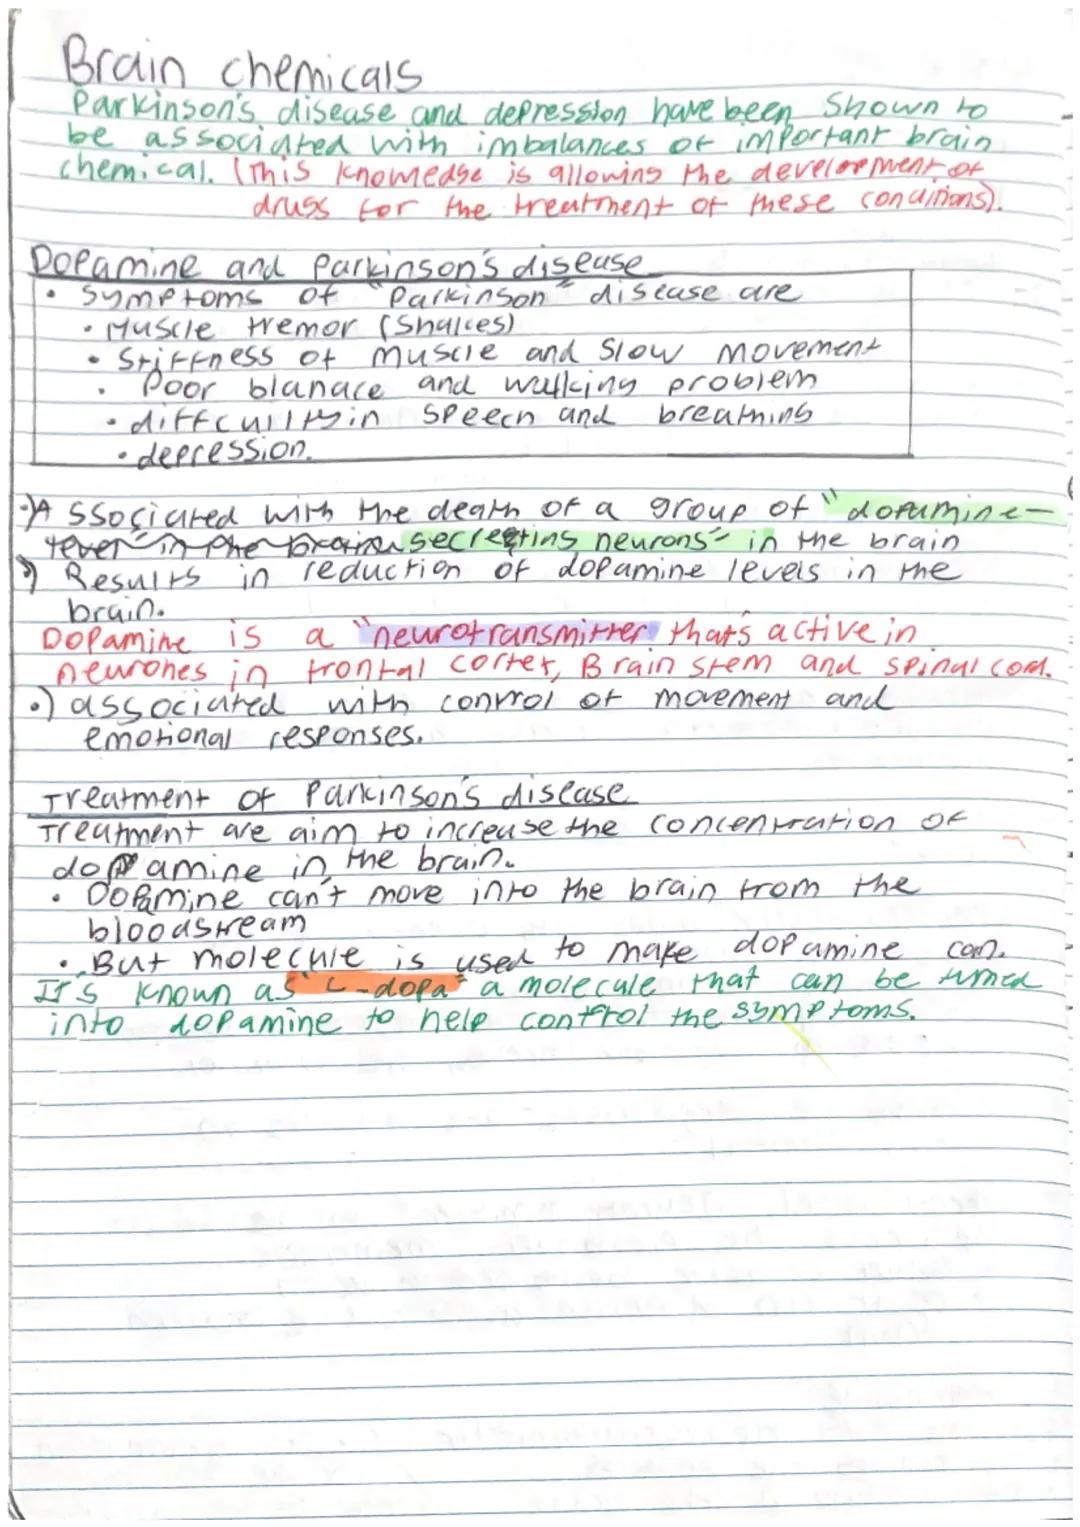 Brain chemicals
Parkinson's disease and depression have been shown to
be associated with imbalances of important brain
chemical. (This knowledge is allowing the development of
drugs for the treatment of these conditions).
Dopamine and Parkinson's disease
• Symptoms of "Parkinson" disease are
• Muscle tremor (Shakes)
• Stiffness of muscle and Slow movement
• Poor blanace and walking problem
• diffcuilty in speech and breathing
• depression.
•) Associated with the death of a group of "dopamine-
secreting neurons" in the brain
•) Results in reduction of dopamine levels in the
brain.
Dopamine is a "neurotransmitter" that's active in
neurones in frontal cortex, Brain stem and spinal cord.
•) associated with control of movement and
emotional responses.
Treatment of Parkinson's disease
Treatment are aim to increase the concentration of
dopamine in the brain.
• Dopamine can't move into the brain from the
bloodstream
• But molecule is used to make dopamine can.
It's known as "L-dopa" a molecule that can be turned
into dopamine to help control the symptoms.